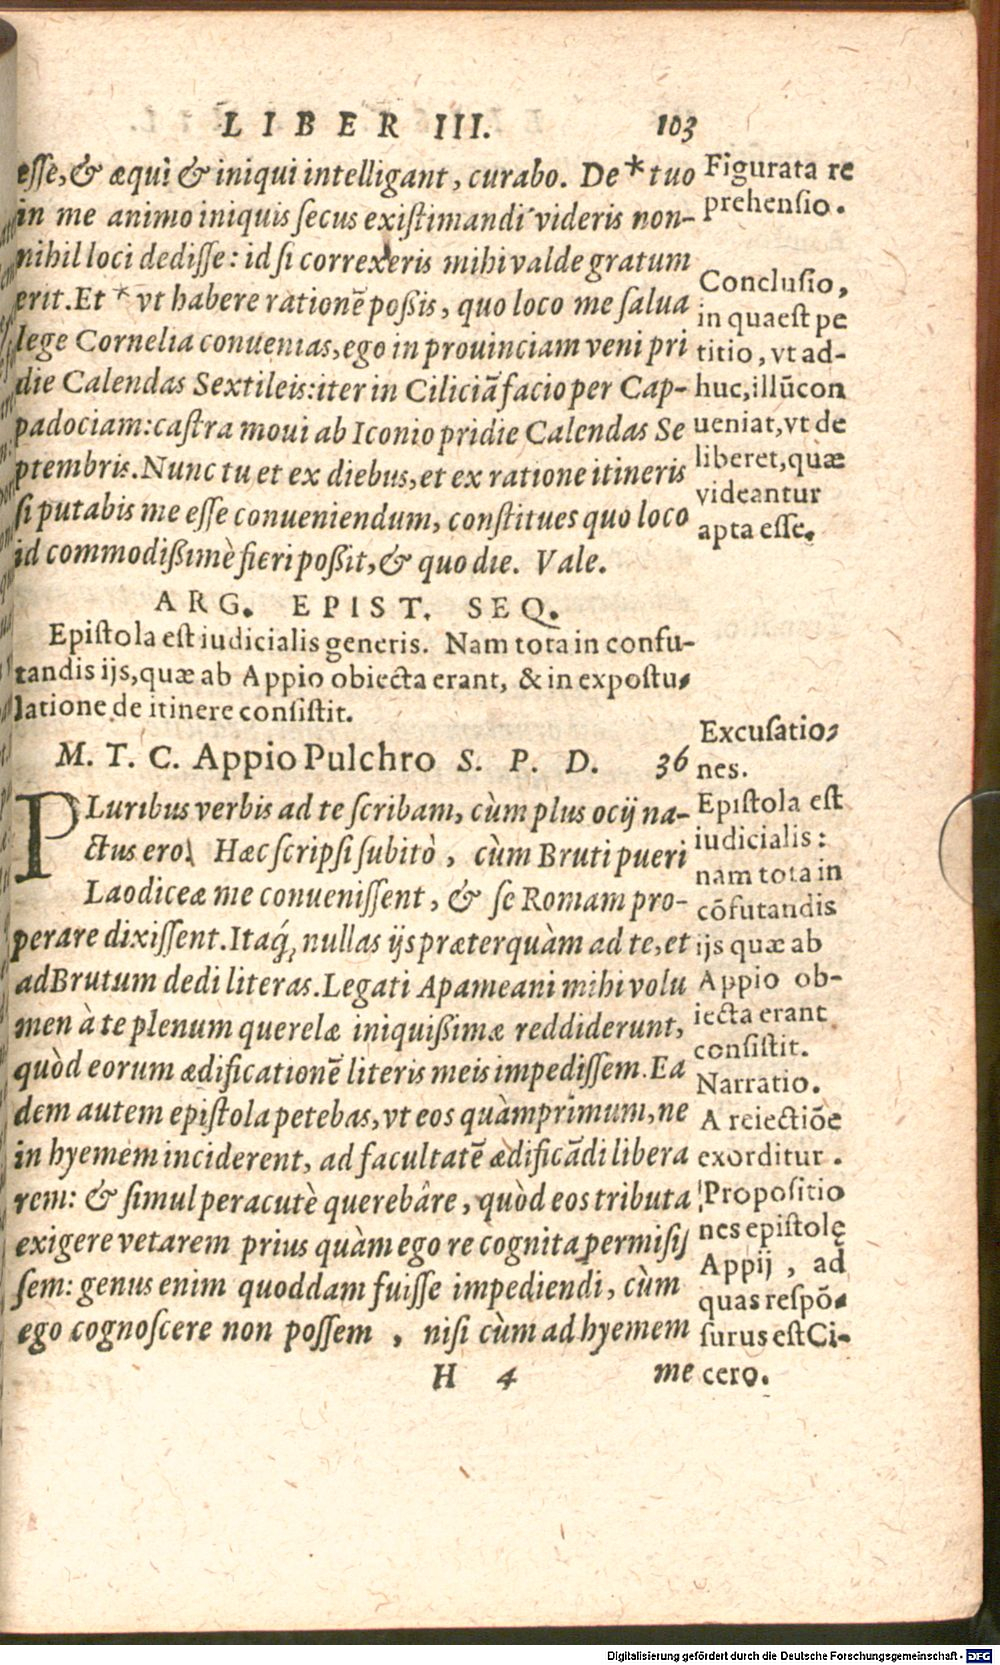 LIBER III. 103
esse, & æqui & iniqui intelligant, curabo. De * tuo
in me animo iniquis secus existimandi videris non-
nihil loci dedisse: id si correxeris mihi valde gratum
erit. Et * vt habere rationẽ poßis, quo loco me salua
lege Cornelia conuenias, ego in prouinciam veni pri
die Calendas Sextileis: iter in Ciliciã facio per Cap-
padociam: castra moui ab Iconio pridie Calendas Se
ptembris. Nunc tu et ex diebus, et ex ratione itineris
si putabis me esse conueniendum, constitues quo loco
id commodißimè fieri poßit, & quo die. Vale.
Figurata re
prehensio.
Conclusio,
in qua est pe
titio, vt ad-
huc, illũ con
ueniat, vt de
liberet, quæ
videantur
apta esse.
ARG. EPIST. SEQ.
Epistola est iudicialis generis. Nam tota in confu-
tandis ijs, quæ ab Appio obiecta erant, & in expostu-
latione de itinere consistit.
M. T. C. Appio Pulchro S. P. D. 36
PLuribus verbis ad te scribam, cùm plus ocij na-
ctus ero. Hæc scripsi subitò, cùm Bruti pueri
Laodiceæ me conuenissent, & se Romam pro-
perare dixissent. Itaq́; nullas ijs præterquàm ad te, et
ad Brutum dedi literas. Legati Apameani mihi volu
men à te plenum querelæ iniquißimæ reddiderunt,
quòd eorum ædificationẽ literis meis impedissem. Ea
dem autem epistola petebas, vt eos quàmprimum, ne
in hyemem inciderent, ad facultatẽ ædificãdi libera
rem: & simul peracutè querebâre, quòd eos tributa
exigere vetarem prius quàm ego re cognita permisis
sem: genus enim quoddam fuisse impediendi, cùm
ego cognoscere non possem, nisi cùm ad hyemem
H 4 me
Excusatio-
nes.
Epistola est
iudicialis:
nam tota in
cõfutandis
ijs quæ ab
Appio ob-
iecta erant
consistit.
Narratio.
A reiectiõe
exorditur.
Propositio
nes epistolę
Appij, ad
quas respõ-
surus est Ci-
cero.
Digitalisierung gefördert durch die Deutsche Forschungsgemeinschaft - DFG